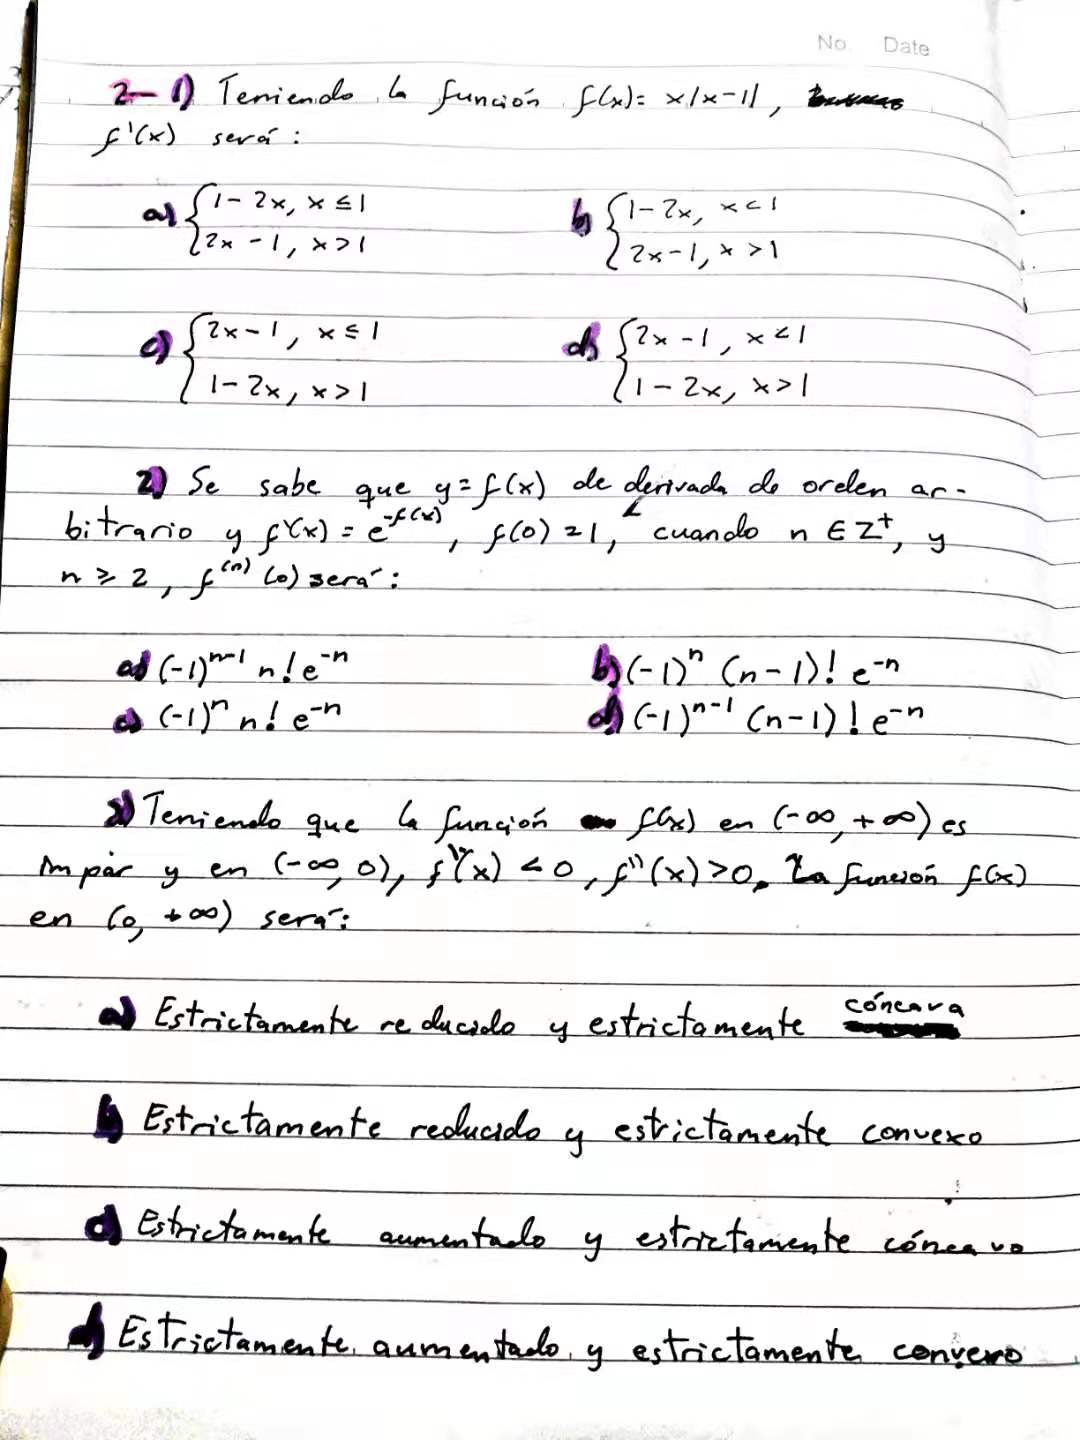 No Date
2- 1) Teniendo la función f(x)= x|x-1|,
f'(x) será:
a) {1- 2x, x ≤ 1
{2x - 1, x > 1
b) {1- 2x, x < 1
{2x-1, x > 1
c) {2x - 1, x ≤ 1
{1- 2x, x > 1
d) {2x - 1, x < 1
{1 - 2x, x > 1
2) Se sabe que y = f(x) de derivada de orden ar-
bitrario y f'(x) = e^{-f(x)}, f(0) = 1, cuando n ∈ Z⁺, y
n ≥ 2, f^{(n)}(0) será:
a) (-1)^{n-1} n! e^{-n}
b) (-1)^n (n-1)! e^{-n}
c) (-1)^n n! e^{-n}
d) (-1)^{n-1} (n-1)! e^{-n}
3) Teniendo que la función f(x) en (-∞, +∞) es
impar y en (-∞, 0), f'(x) < 0, f''(x) > 0. La función f(x)
en (0, +∞) será:
a) Estrictamente reducido y estrictamente cóncava
b) Estrictamente reducido y estrictamente convexo
c) Estrictamente aumentado y estrictamente cóncavo
d) Estrictamente aumentado y estrictamente convexo